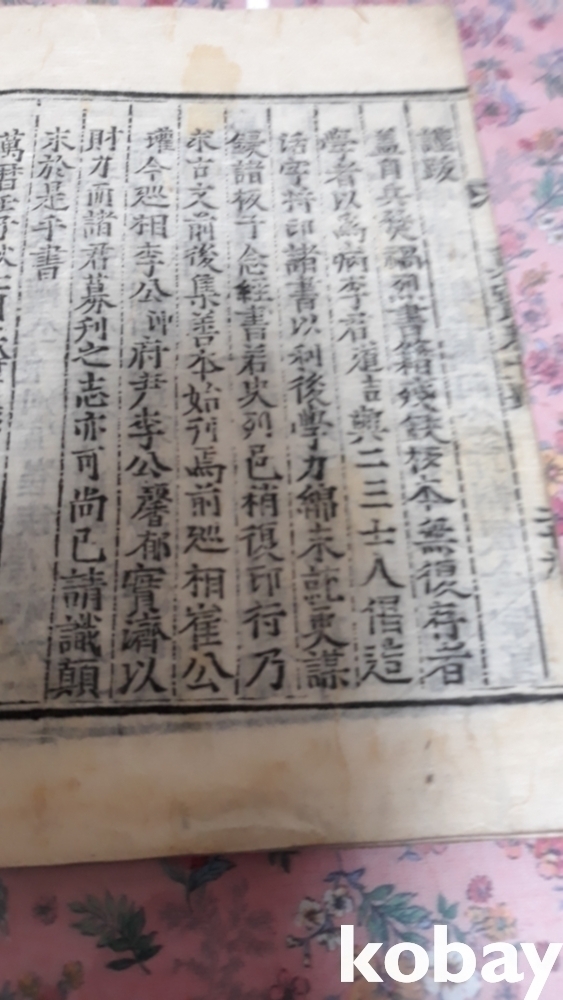 謹跋
蓋自兵燹禍烈書籍殘缺板本無復存者
學者以爲病李君道吉與二三士人倡造
活字將印諸書以利後學力綿未訖更謀
鋟諸板于念經書若史列邑稍復印行乃
求古文前後集善本始刊焉前巡相崔公
瓘今巡相李公府尹李公馨郁實濟以
財力而諸君募刊之志亦可尚已請識顚
末於是乎書
萬曆
kobay